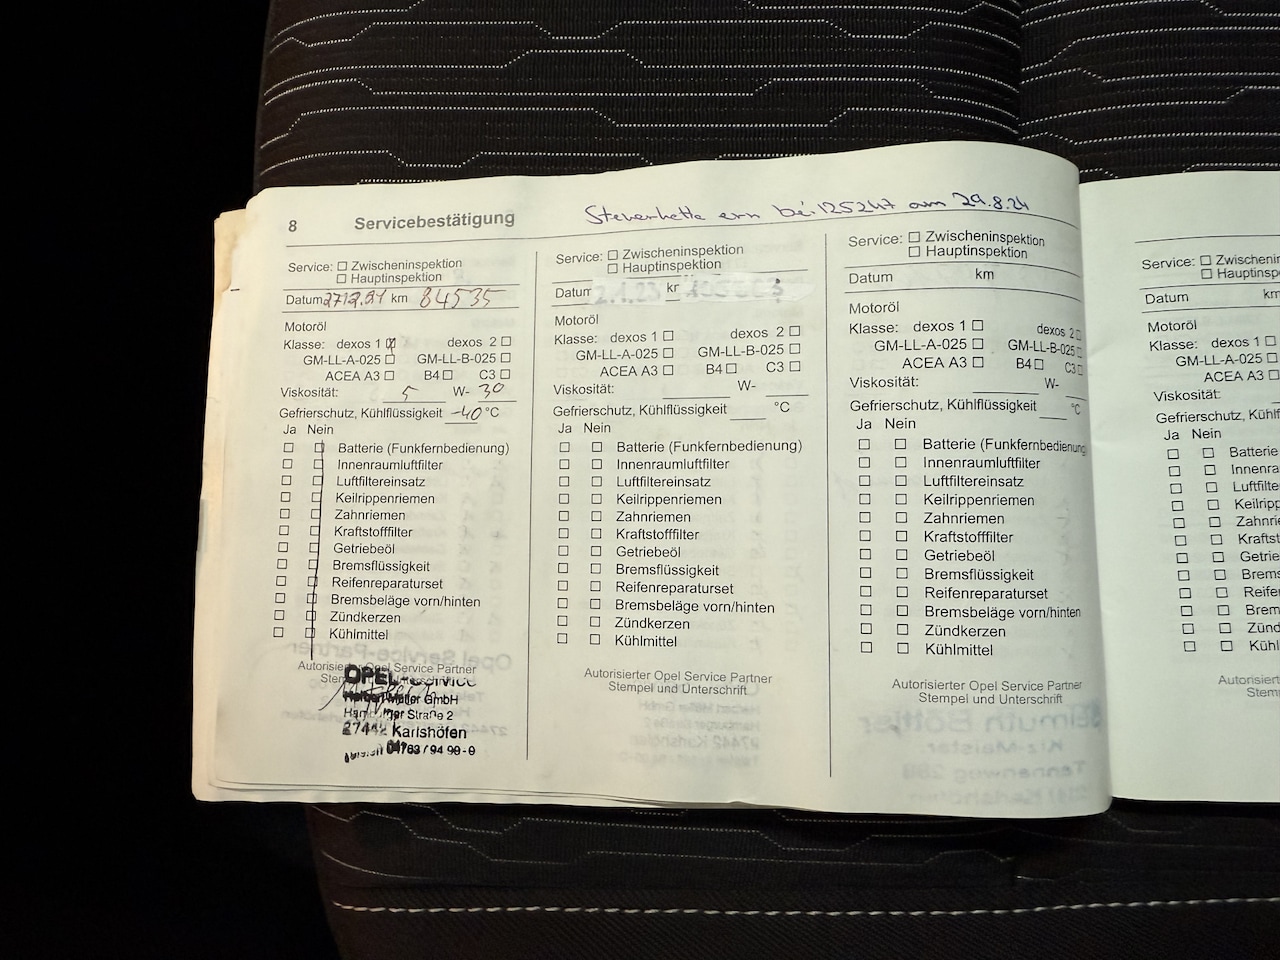 8 Servicebestätigung
Steuerkette ern bei 125247 am 29.8.24
Service: ☐ Zwischeninspektion
☐ Hauptinspektion
Datum 27.12.21 km 84535
Motoröl
Klasse: dexos 1 ☒ dexos 2 ☐
GM-LL-A-025 ☐ GM-LL-B-025 ☐
ACEA A3 ☐ B4 ☐ C3 ☐
Viskosität: 5 W- 30
Gefrierschutz, Kühlflüssigkeit -40 °C
Ja Nein
☐ ☐ Batterie (Funkfernbedienung)
☐ ☐ Innenraumluftfilter
☐ ☐ Luftfiltereinsatz
☐ ☐ Keilrippenriemen
☐ ☐ Zahnriemen
☐ ☐ Kraftstofffilter
☐ ☐ Getriebeöl
☐ ☐ Bremsflüssigkeit
☐ ☐ Reifenreparaturset
☐ ☐ Bremsbeläge vorn/hinten
☐ ☐ Zündkerzen
☐ ☐ Kühlmittel
Autorisierter Opel Service Partner
OPEL Service
GmbH
Straße 2
27442 Karlshöfen
04763 / 94 90-0
Service: ☐ Zwischeninspektion
☐ Hauptinspektion
Datum 2.1.23
Motoröl
Klasse: dexos 1 ☐ dexos 2 ☐
GM-LL-A-025 ☐ GM-LL-B-025 ☐
ACEA A3 ☐ B4 ☐ C3 ☐
Viskosität: W-
Gefrierschutz, Kühlflüssigkeit °C
Ja Nein
☐ ☐ Batterie (Funkfernbedienung)
☐ ☐ Innenraumluftfilter
☐ ☐ Luftfiltereinsatz
☐ ☐ Keilrippenriemen
☐ ☐ Zahnriemen
☐ ☐ Kraftstofffilter
☐ ☐ Getriebeöl
☐ ☐ Bremsflüssigkeit
☐ ☐ Reifenreparaturset
☐ ☐ Bremsbeläge vorn/hinten
☐ ☐ Zündkerzen
☐ ☐ Kühlmittel
Autorisierter Opel Service Partner
Stempel und Unterschrift
Service: ☐ Zwischeninspektion
☐ Hauptinspektion
Datum km
Motoröl
Klasse: dexos 1 ☐ dexos 2 ☐
GM-LL-A-025 ☐ GM-LL-B-025 ☐
ACEA A3 ☐ B4 ☐ C3 ☐
Viskosität: W-
Gefrierschutz, Kühlflüssigkeit °C
Ja Nein
☐ ☐ Batterie (Funkfernbedienung
☐ ☐ Innenraumluftfilter
☐ ☐ Luftfiltereinsatz
☐ ☐ Keilrippenriemen
☐ ☐ Zahnriemen
☐ ☐ Kraftstofffilter
☐ ☐ Getriebeöl
☐ ☐ Bremsflüssigkeit
☐ ☐ Reifenreparaturset
☐ ☐ Bremsbeläge vorn/hinten
☐ ☐ Zündkerzen
☐ ☐ Kühlmittel
Autorisierter Opel Service Partner
Stempel und Unterschrift
Service: ☐ Zwischenin
☐ Hauptinsp
Datum km
Motoröl
Klasse: dexos 1 ☐
GM-LL-A-025 ☐
ACEA A3 ☐
Viskosität:
Gefrierschutz, Kühlfl
Ja Nein
☐ ☐ Batterie
☐ ☐ Innenra
☐ ☐ Luftfilte
☐ ☐ Keilripp
☐ ☐ Zahnri
☐ ☐ Kraftst
☐ ☐ Getrie
☐ ☐ Brems
☐ ☐ Reife
☐ ☐ Brem
☐ ☐ Zünd
☐ ☐ Kühl
Autorisier
Stem